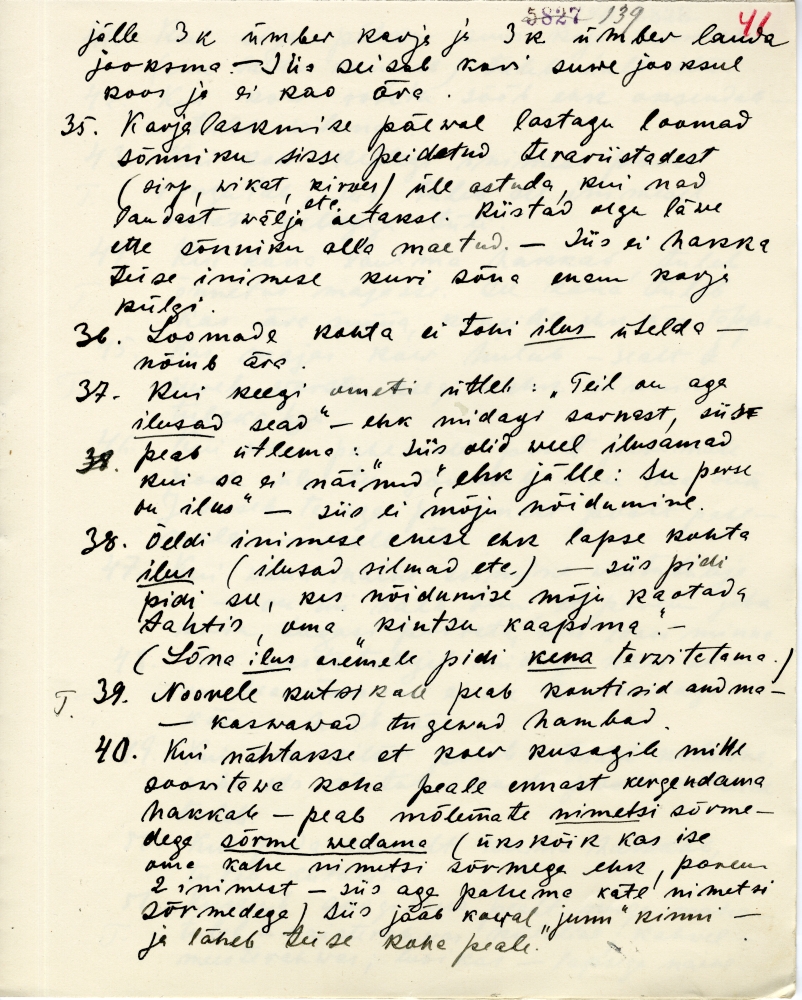 5827 139 41
jälle 3 k ümber karja ja 3 k ümber lauda
jooksma. – Siis seisab kari suwe jooksul
koos ja ei kao ära.
35. Karja laskmise päewal lastagu loomad
sõnniku sisse peidetud terariistadest
(sirp, wikat, kirwes) üle astuda, kui nad
laudast wälja etc. aetakse. Riistad olgu läwe
ette sõnniku alla maetud. – Siis ei hakka
teise inimese kuri sõna enam karja
külgi.
36. Loomade kohta ei tohi ilus ütelda –
nõiub ära.
37. Kui keegi ometi ütleb: „Teil on aga
ilusad sead“ – ehk midagi sarnast, siis
peab ütlema: „Siis olid weel ilusamad
kui sa ei näinud“, ehk jälle: Su perse
on ilus“ – siis ei mõju nõidumine.
38. Öeldi inimese enese ehk lapse kohta
ilus (ilusad silmad etc.) – siis pidi
pidi see, kes nõidumise mõju kaotada
tahtis, oma „kintsu kaapima“. –
(Sõna ilus asemele pidi kena tarwitetama.)
T. 39. Noorele kutsikale peab kontisid andma –
– kaswawad tugewad hambad.
40. Kui nähtakse et koer kusagile mitte
soowitawa koha peale ennast kergendama
hakkab – peab mõlemate nimetsi sõrme-
dega sõrme wedama (ükskõik kas ise
oma kahe nimetsi sõrmega ehk, parem
2 inimest – siis aga pahema käte nimetsi
sõrmedega) siis jääb koeral „junn“ kinni –
ja läheb teise koha peale.